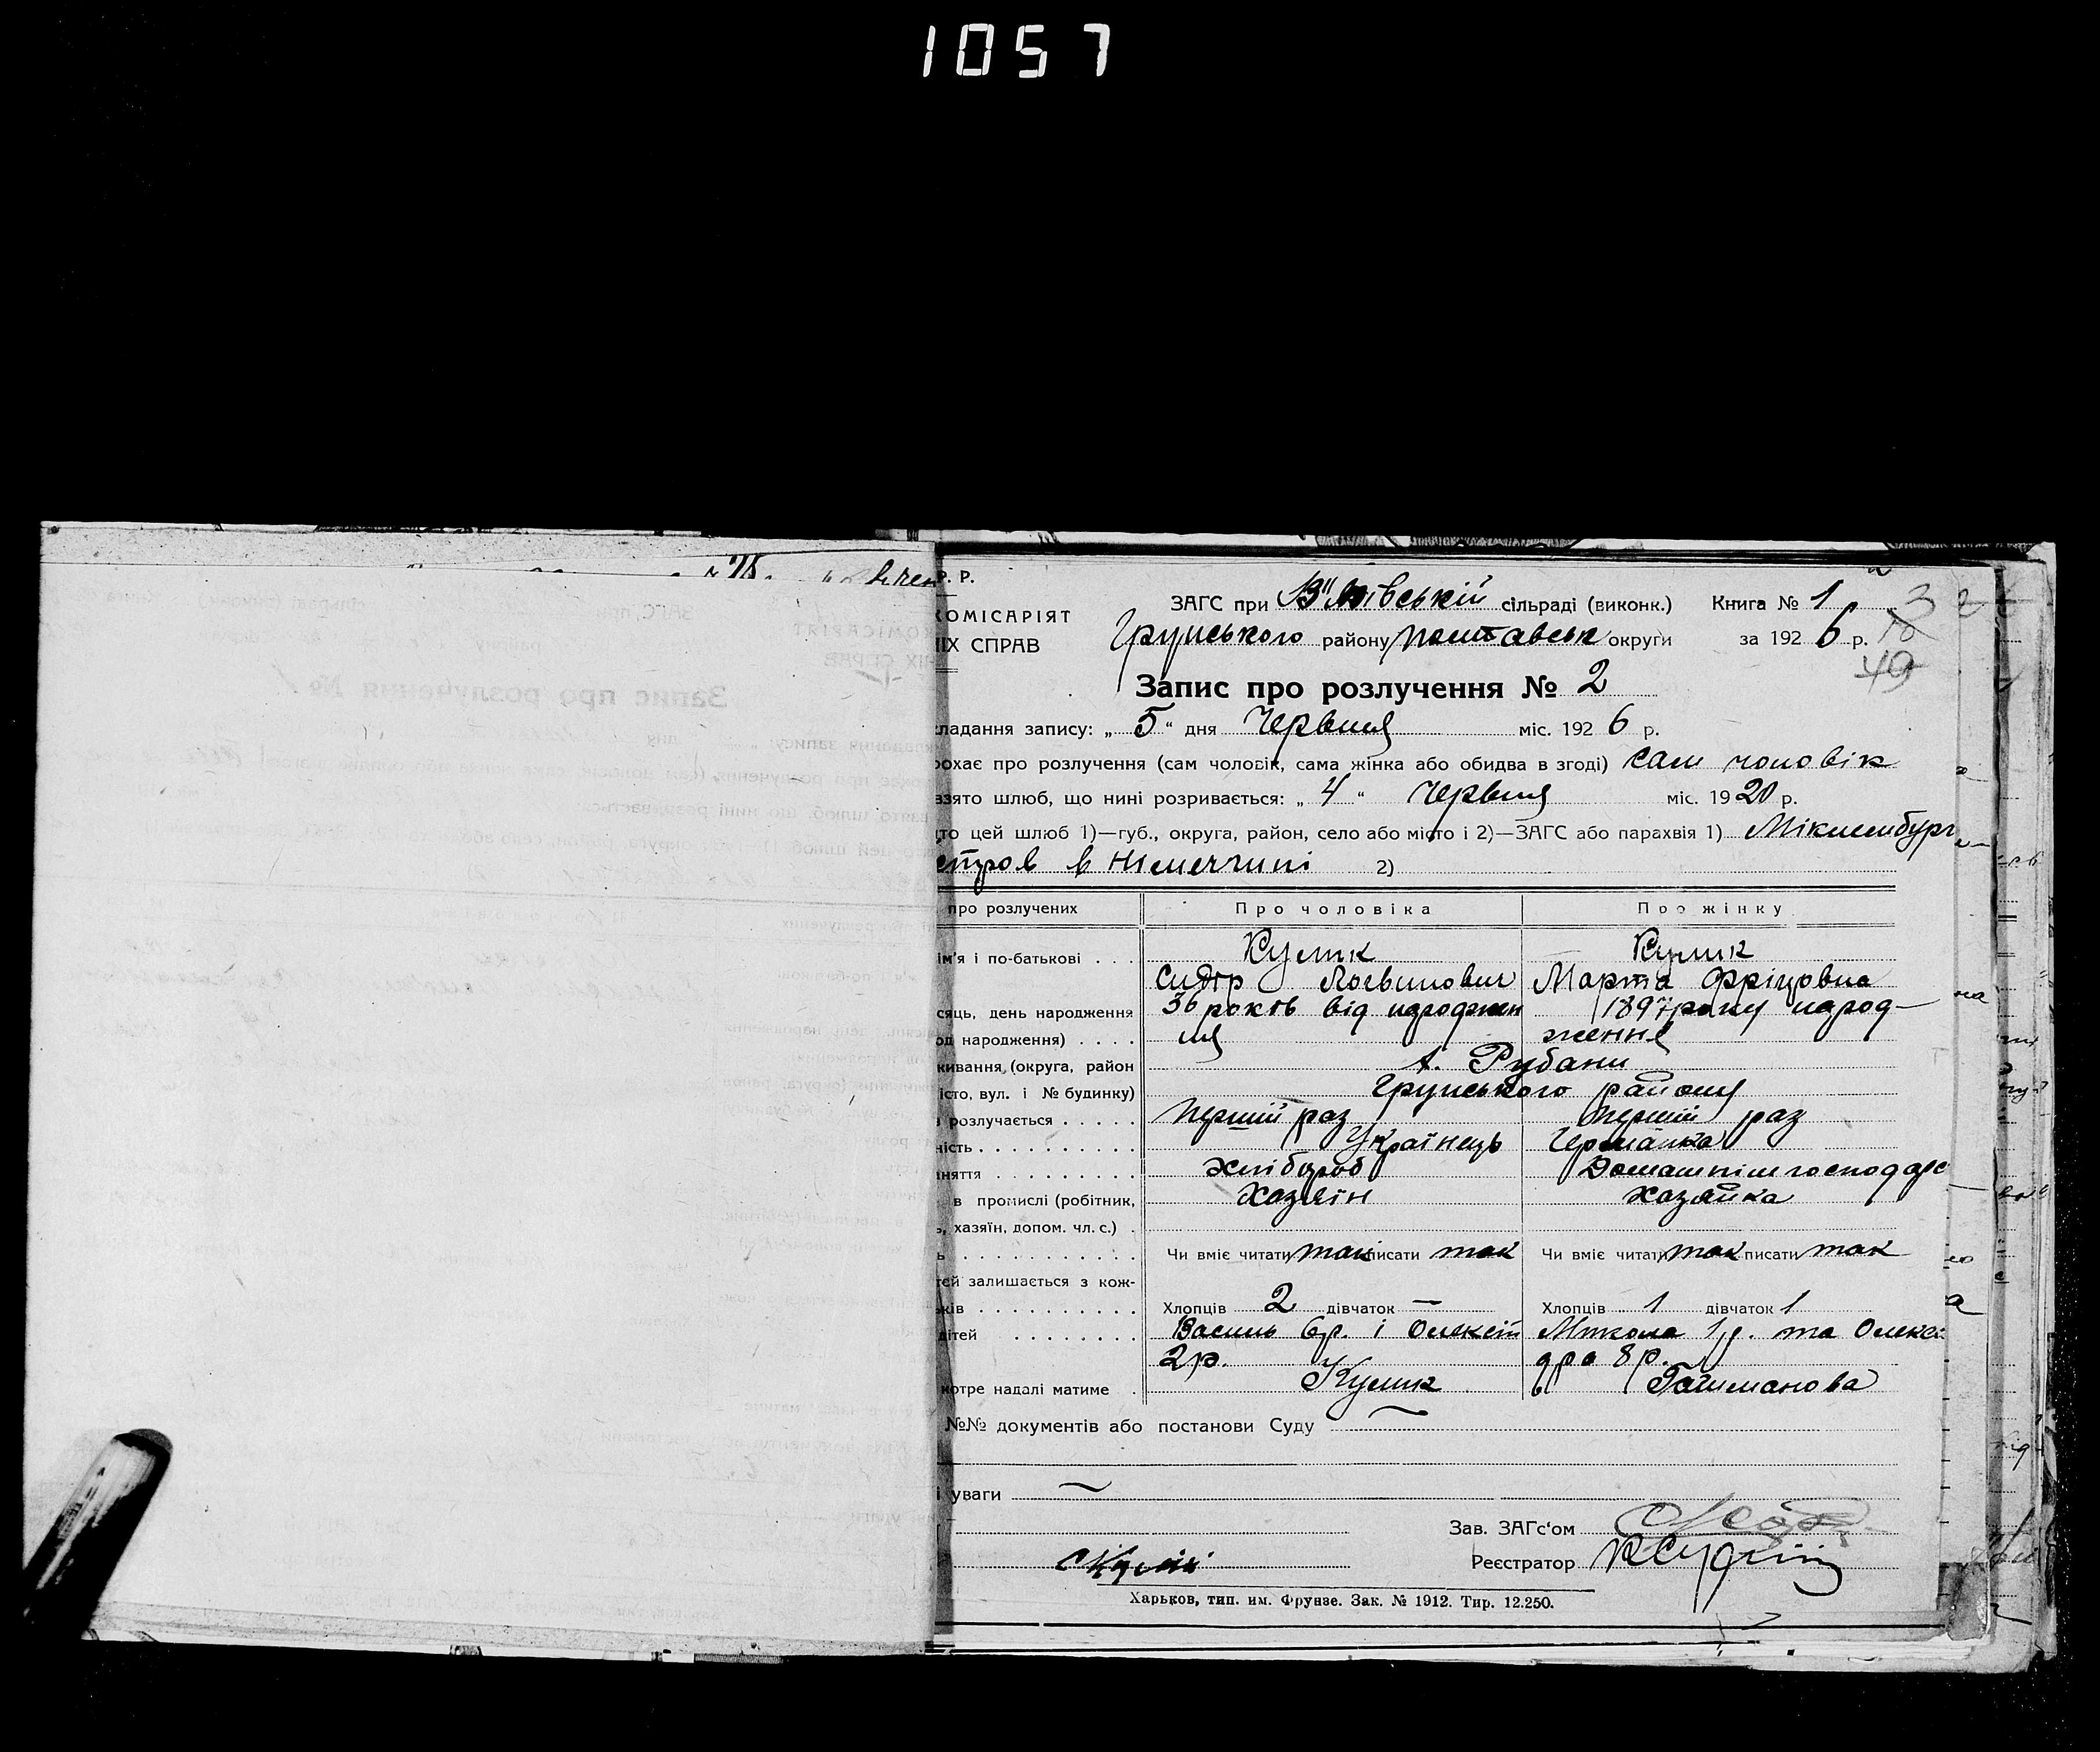 1057
Р. Р.
ЗАГС при В'язівській сільраді (виконк.) Книга № 1
КОМІСАРІЯТ
Грунського району Полтавськ округи за 1926 р.
ІХ СПРАВ
3
49
Запис про розлучення № 2
ладання запису: „5“ дня Червня міс. 1926 р.
охає про розлучення (сам чоловік, сама жінка або обидва в згоді) сам чоловік
взято шлюб, що нині розривається: „4“ Червня міс. 1920 р.
то цей шлюб 1)—губ., округа, район, село або місто і 2)—ЗАГС або парахвія 1) Мікленбург
в Німеччині 2)
про розлучених Про чоловіка Про жінку
ім'я і по-батькові . . . Кулик Кулик
Сидір Логвинович Марта Фріцовна
сяць, день народження 36 років від народжен 1897 року народ-
од народження) . . . . ня ження
живання (округа, район х. Рубани
істо, вул. і № будинку) Грунського району
розлучається . . . . . Перший раз Перший раз
ність . . . . . . . . . . Українець Германка
няття . . . . . . . . . хлібороб Домашнім господарс
в промислі (робітник, Хазяїн хазяйка
ь, хазяїн, допом. чл. с.) .
ь . . . . . . . . . . . Чи вміє читати так писати так Чи вміє читати так писати так
тей залишається з кож-
ків . . . . . . . . . . Хлопців 2 дівчаток — Хлопців 1 дівчаток 1
дітей . . . . . . . . Василь 6р. і Олексій Микола 1р. та Олексан
2р. дра 8р.
котре надалі матиме . Кулик Гатиманова
№№ документів або постанови Суду —
і уваги —
Зав. ЗАГс'ом
С Кулик Реєстратор
Харьков, тип. им. Фрунзе. Зак. № 1912. Тир. 12.250.